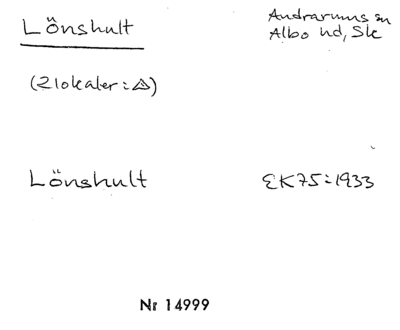 Lönshult
Andrarums sn
Albo hd, Sk
(2 lokaler: △)
Lönshult
EK75:1933
Nr 14999